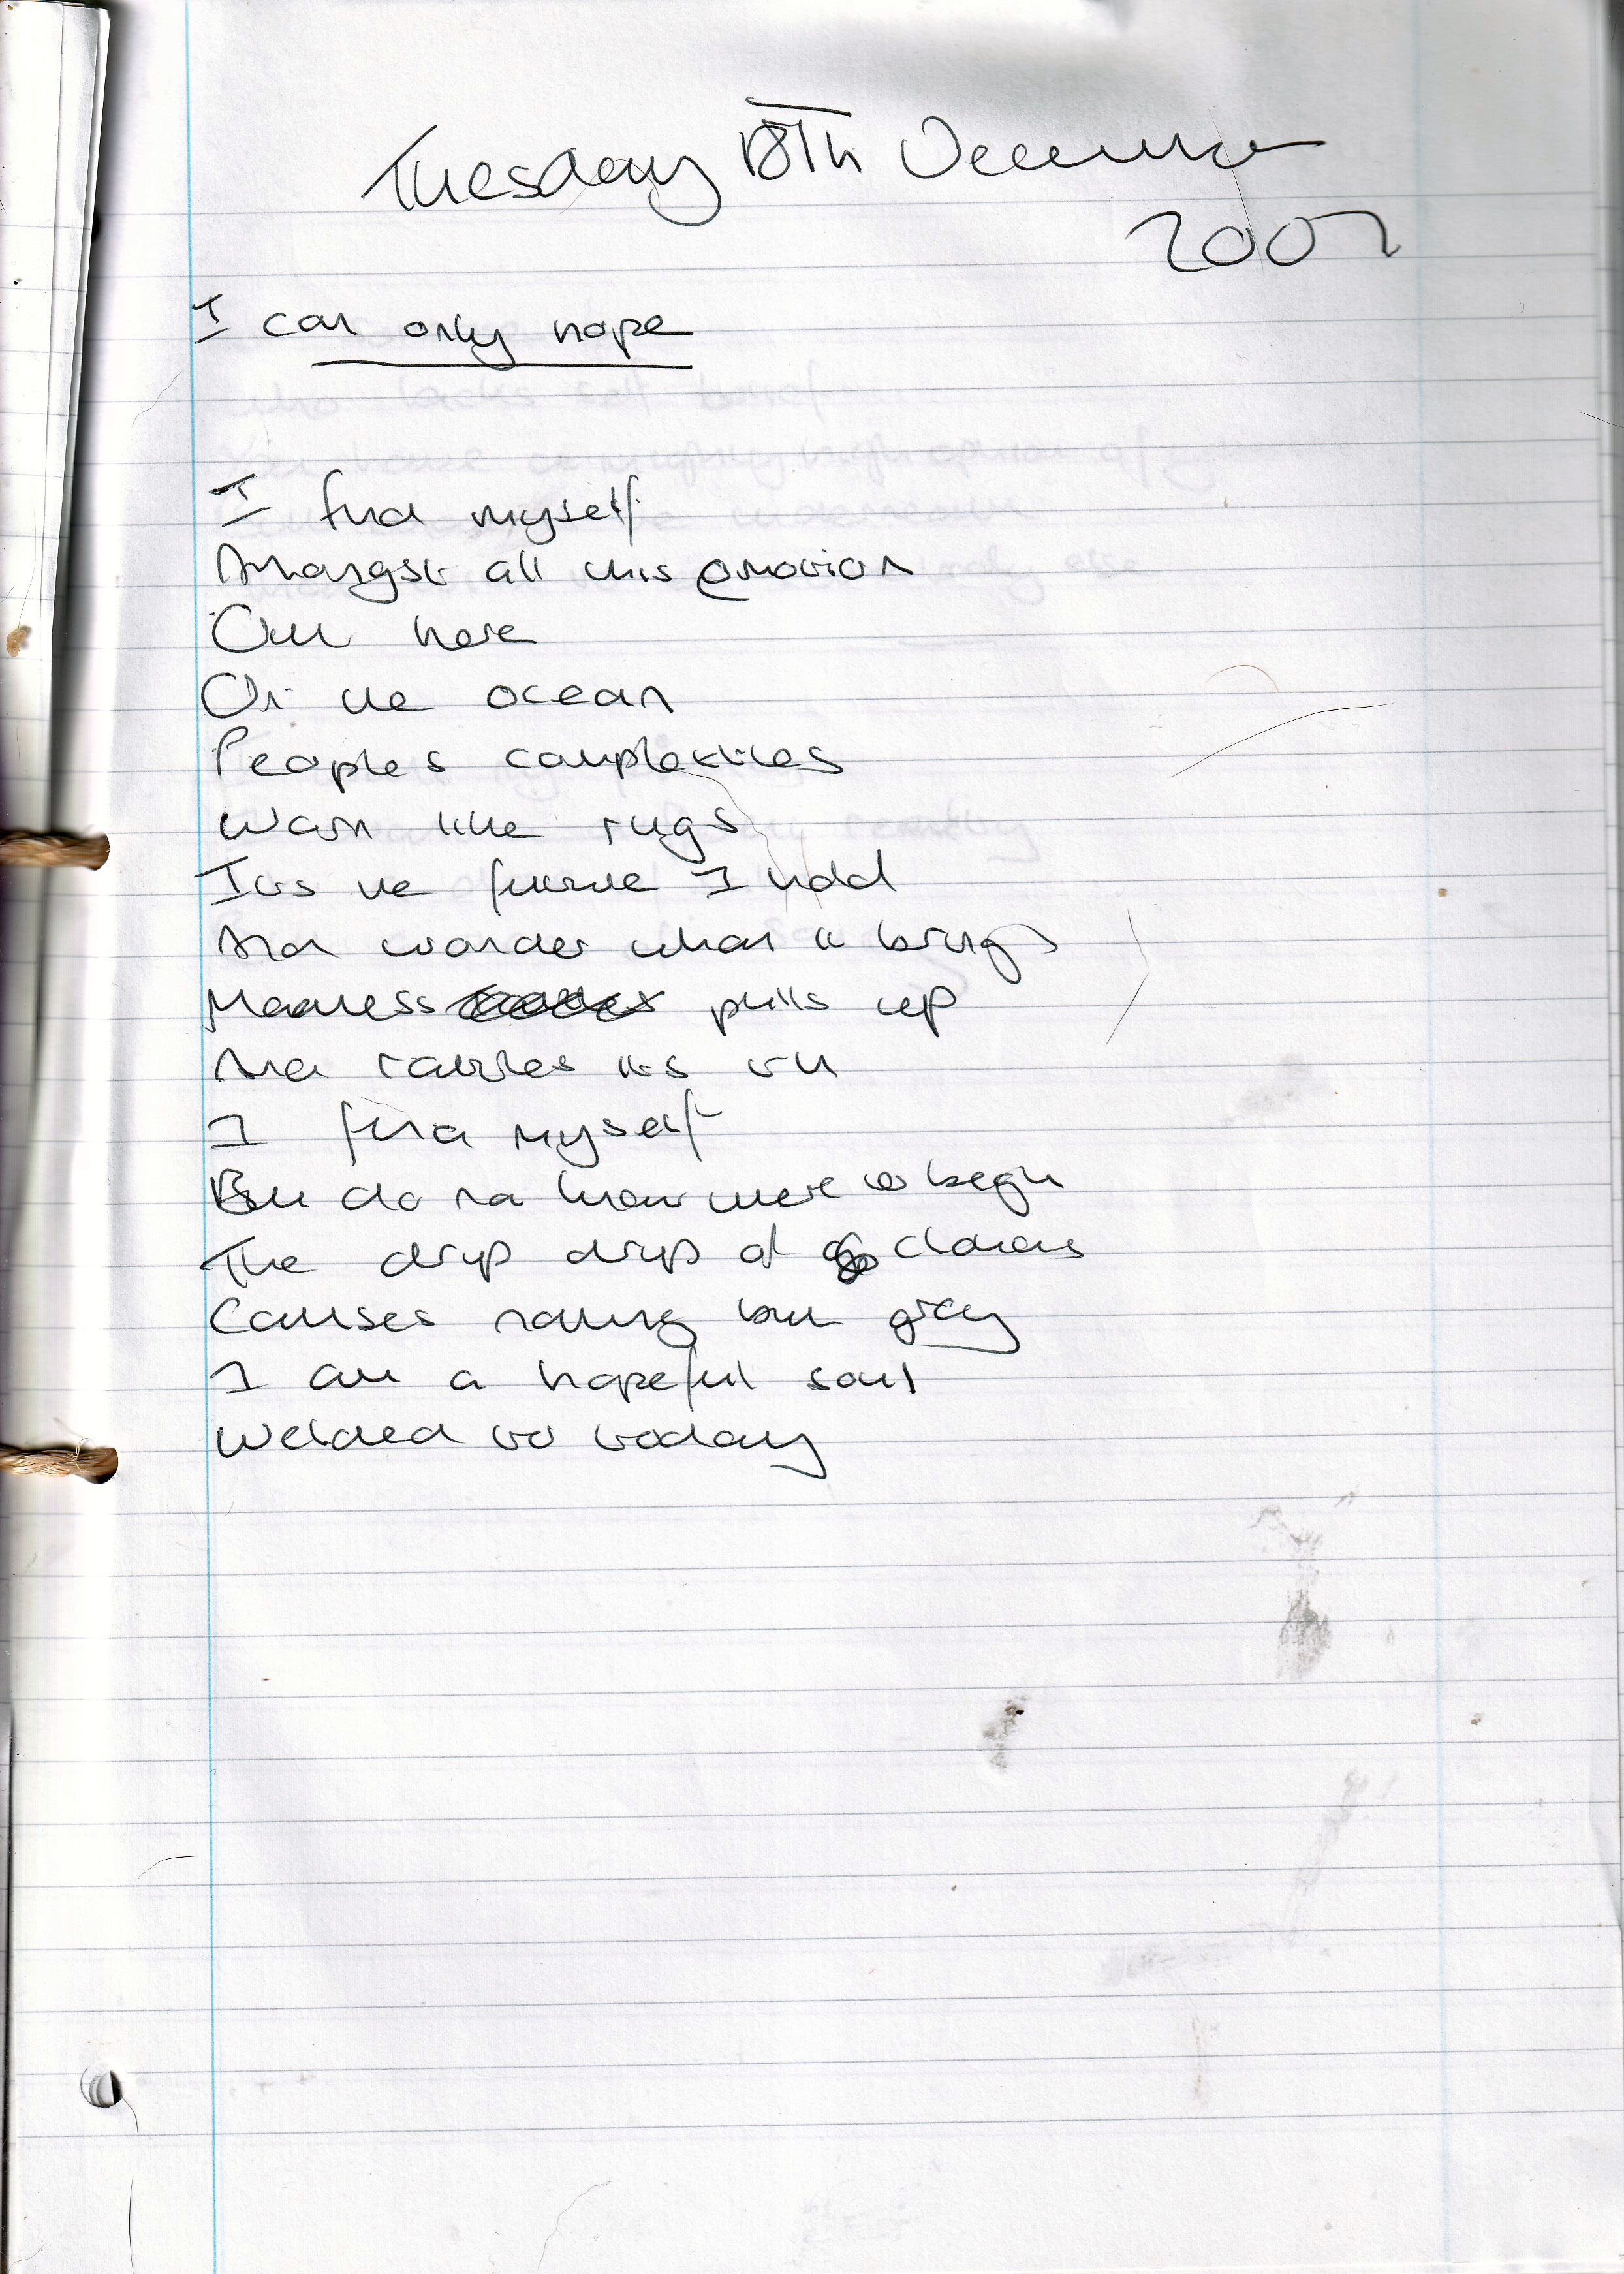 Tuesday 18Th December
2007
I can only hope
I find myself
Amongst all this emotion
Out here
On the ocean
Peoples complexities
Worn like rugs
Its the future I hold
And wonder what it brings
Madness pulls up
And rattles its tin
I find myself
But do not know where to begin
The drip drip of clouds
Causes nothing but grey
I am a hopeful soul
Welded to today